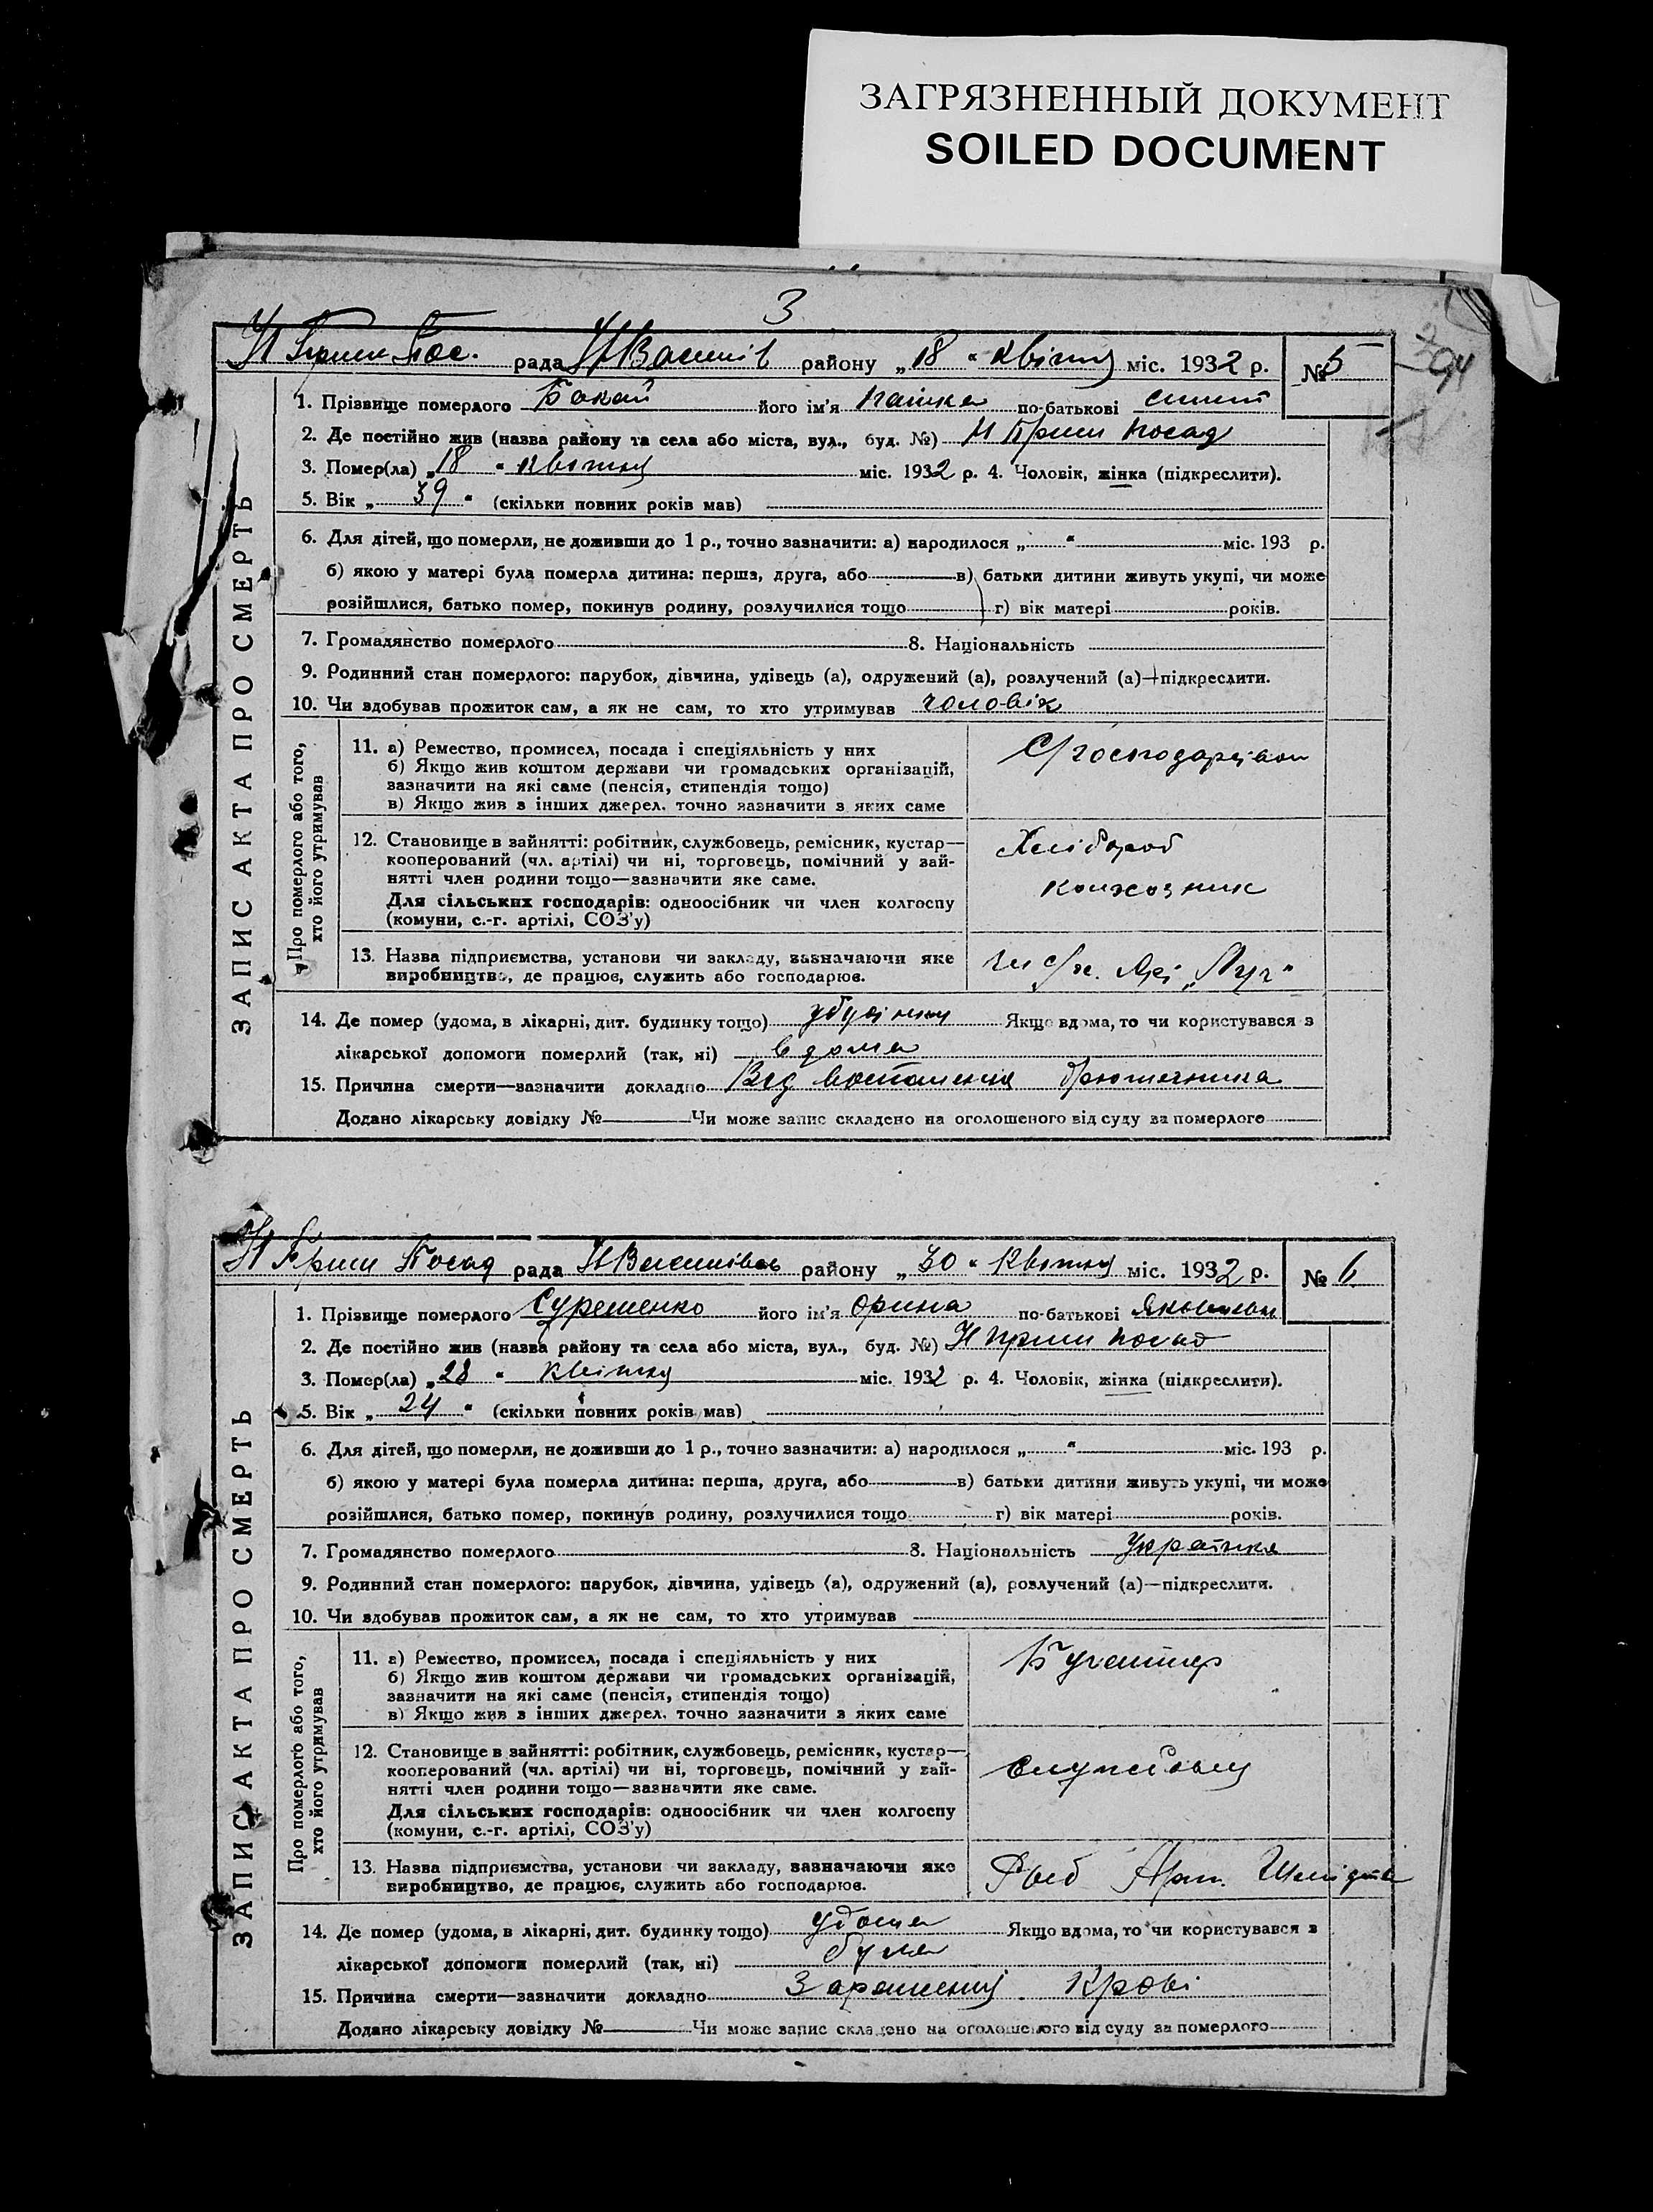 ЗАГРЯЗНЕННЫЙ ДОКУМЕНТ
SOILED DOCUMENT
3
394
Н Приш Пос. рада Н Василів району „18“ квітня міс. 1932 р. № 5
1. Прізвище померлого Бакай його ім'я Пашка по-батькові
2. Де постійно жив (назва району та села або міста, вул., буд. №) Н Приш Посад
3. Помер(ла) „18“ квітня міс. 1932 р. 4. Чоловік, жінка (підкреслити).
5. Вік „39“ (скільки повних років мав)
6. Для дітей, що померли, не доживши до 1 р., точно зазначити: а) народилося „ “ міс. 193 р.
б) якою у матері була померла дитина: перша, друга, або в) батьки дитини живуть укупі, чи може
розійшлися, батько помер, покинув родину, розлучилися тощо г) вік матері років.
7. Громадянство померлого 8. Національність
9. Родинний стан померлого: парубок, дівчина, удівець (а), одружений (а), розлучений (а)—підкреслити.
10. Чи здобував прожиток сам, а як не сам, то хто утримував чоловік
ЗАПИС АКТА ПРО СМЕРТЬ
Про померлого або того, хто його утримував
11. а) Ремество, промисел, посада і спеціяльність у них
б) Якщо жив коштом держави чи громадських організацій,
зазначити на які саме (пенсія, стипендія тощо)
в) Якщо жив з інших джерел, точно зазначити з яких саме
С/господарством
12. Становище в зайнятті: робітник, службовець, ремісник, кустар—
кооперований (чл. артілі) чи ні, торговець, помічний у зай-
нятті член родини тощо—зазначити яке саме.
Для сільських господарів: одноосібник чи член колгоспу
(комуни, с.-г. артілі, СОЗ'у)
Хлібороб
колхозник
13. Назва підприємства, установи чи закладу, зазначаючи яке
виробництво, де працює, служить або господарює.
чл с/х. Арт „Луч“
14. Де помер (удома, в лікарні, дит. будинку тощо) Якщо вдома, то чи користувався з
лікарської допомоги померлий (так, ні) вдома
15. Причина смерти—зазначити докладно Від воспаления брюшечника
Додано лікарську довідку № Чи може запис складено на оголошеного від суду за померлого
Н Приш Посад рада Н Василівсь району „30“ Квітня міс. 1932 р. № 6
1. Прізвище померлого його ім'я Орина по-батькові Яковлевн
2. Де постійно жив (назва району та села або міста, вул., буд. №) Н Приш Посад
3. Помер(ла) „28“ Квітня міс. 1932 р. 4. Чоловік, жінка (підкреслити).
5. Вік „24“ (скільки повних років мав)
6. Для дітей, що померли, не доживши до 1 р., точно зазначити: а) народилося „ “ міс. 193 р.
б) якою у матері була померла дитина: перша, друга, або в) батьки дитини живуть укупі, чи може
розійшлися, батько помер, покинув родину, розлучилися тощо г) вік матері років.
7. Громадянство померлого 8. Національність Украінка
9. Родинний стан померлого: парубок, дівчина, удівець (а), одружений (а), розлучений (а)—підкреслити.
10. Чи здобував прожиток сам, а як не сам, то хто утримував
ЗАПИС АКТА ПРО СМЕРТЬ
Про померлого або того, хто його утримував
11. а) Ремество, промисел, посада і спеціяльність у них
б) Якщо жив коштом держави чи громадських організацій,
зазначити на які саме (пенсія, стипендія тощо)
в) Якщо жив з інших джерел, точно зазначити з яких саме
Бугалтир
12. Становище в зайнятті: робітник, службовець, ремісник, кустар—
кооперований (чл. артілі) чи ні, торговець, помічний у зай-
нятті член родини тощо—зазначити яке саме.
Для сільських господарів: одноосібник чи член колгоспу
(комуни, с.-г. артілі, СОЗ'у)
Службовец
13. Назва підприємства, установи чи закладу, зазначаючи яке
виробництво, де працює, служить або господарює.
Рыб Арт. Шмідта
14. Де помер (удома, в лікарні, дит. будинку тощо) удома Якщо вдома, то чи користувався з
лікарської допомоги померлий (так, ні) була
15. Причина смерти—зазначити докладно Зараження Крові
Додано лікарську довідку № Чи може запис складено на оголошеного від суду за померлого